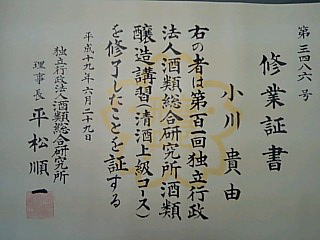 第三四八六号
修業証書
小川貴由
右の者は第百一回独立行政
法人酒類総合研究所酒類
醸造講習(清酒上級コース)
を修了したことを証する
平成十九年六月二十九日
独立行政法人酒類総合研究所
理事長 平松順一